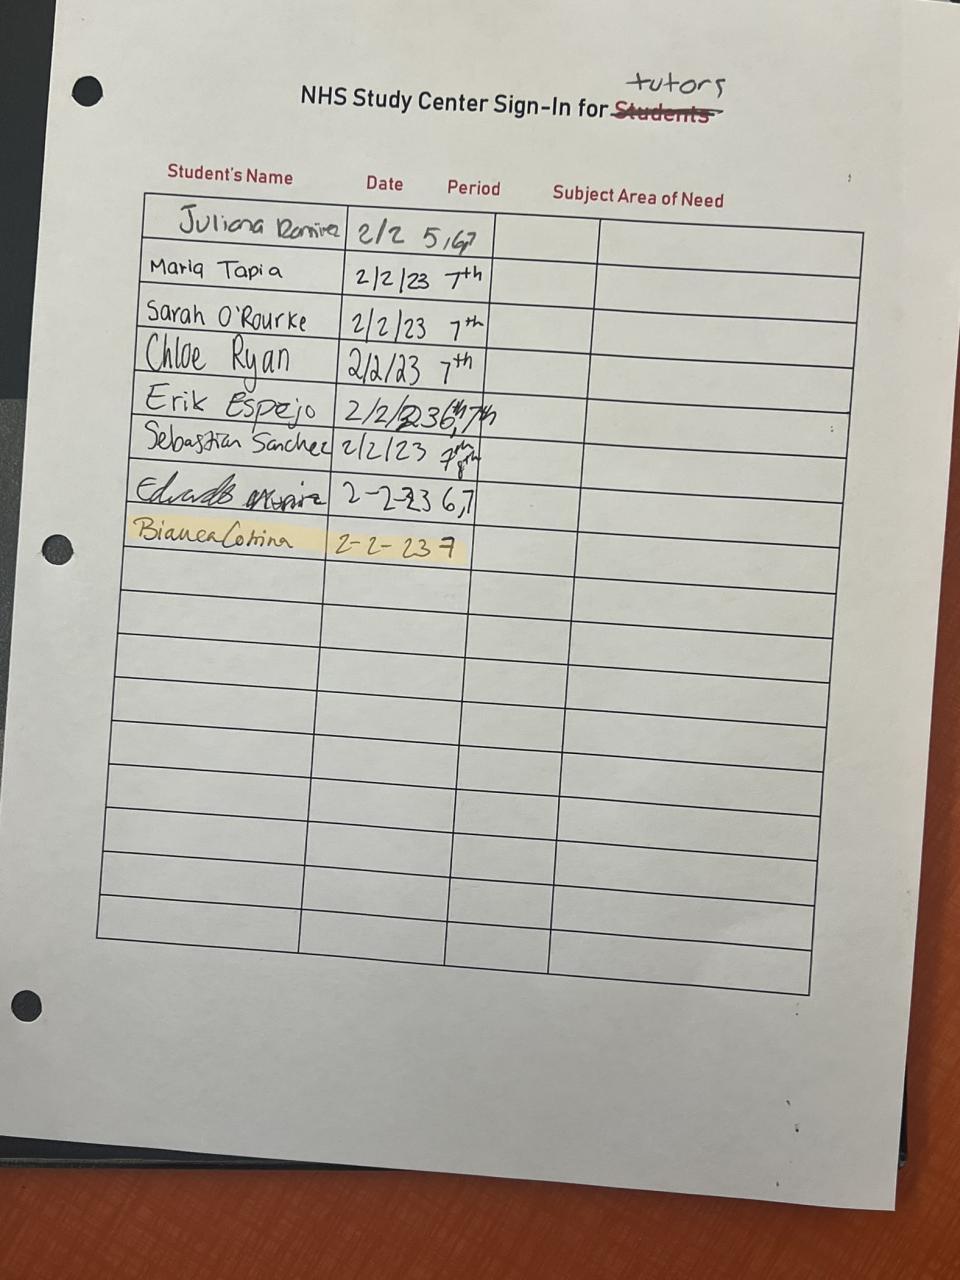 tutors
NHS Study Center Sign-In for Students
Student's Name Date Period Subject Area of Need
Juliana Ramirez 2/2 5,6,7
Maria Tapia 2/2/23 7th
Sarah O'Rourke 2/2/23 7th
Chloe Ryan 2/2/23 7th
Erik Espejo 2/2/23 6th,7th
Sebastian Sanchez 2/2/23 7th 8th
2-2-23 6,7
Bianca 2-2-23 7